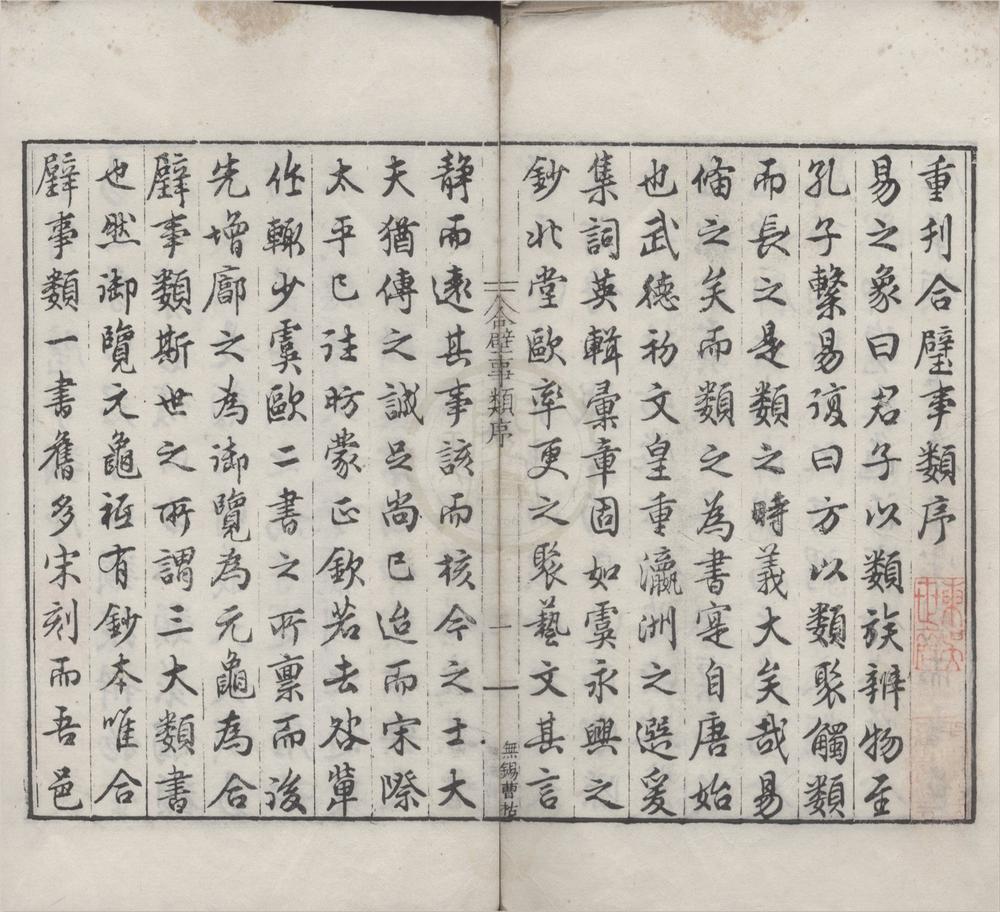 重刊合璧事類序
易之象曰君子以類族辨物至
孔子繫易復曰方以類聚觸類
而長之是類之時義大矣哉易
備之矣而類之為書寔自唐始
也武德初文皇重瀛洲之選爰
集詞英輯彙章固如虞永興之
鈔北堂歐率更之聚藝文其言
合璧事類序
一
無錫曹
靜而遠其事該而核今之士大
夫猶傳之誠足尚已迨而宋際
太平已詔昉蒙正欽若去咎輩
作輙少虞歐二書之所稟而後
先增廓之為御覽為元龜為合
璧事類斯世之所謂三大類書
也然御覽元龜祗有鈔本唯合
璧事類一書舊多宋刻而吾邑